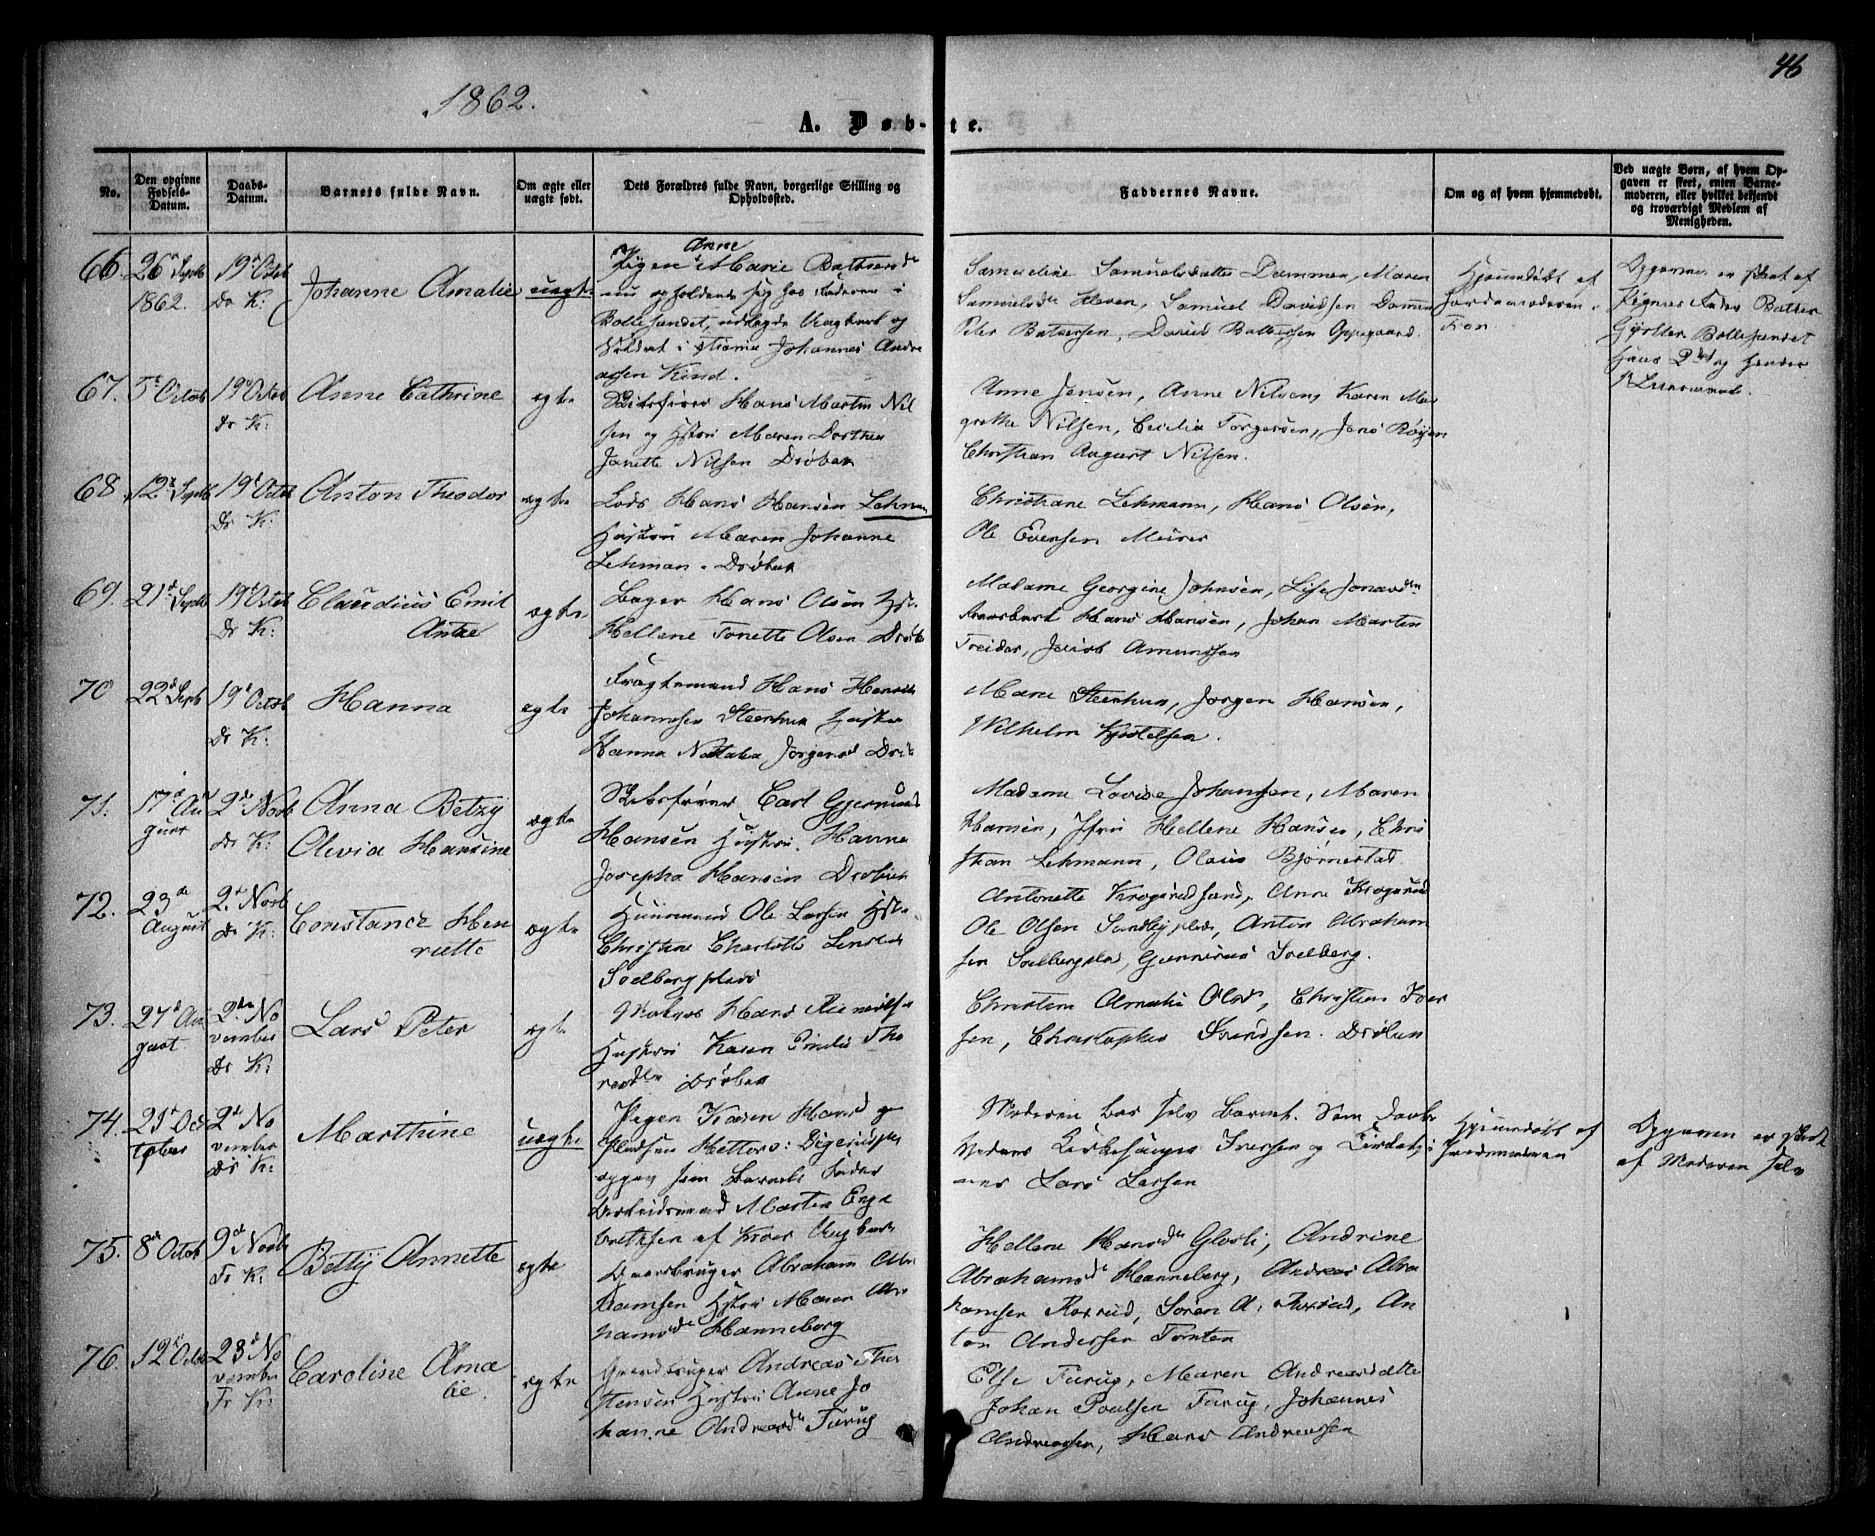 46
1862.
A. Døb-te.
No.
Den opgivne Fødsels-Datum.
Daabs-Datum.
Barnets fulde Navn.
Om ægte eller uægte født.
Dets Forældres fulde Navn, borgerlige Stilling og Opholdssted.
Faddernes Navne.
Om og af hvem hjemmedøbt.
Ved uægte Børn, af hvem Opgaven er skeet, enten Barnemoderen, eller hvilket bekjendt og troværdigt Medlem af Menigheden.
66. 26 Septb 1862. 19 Octob Dr K:
Johanne Amalie
uægte
Pigen Anne Marie
nu opholdende sig hos Faderen i
Bollesandet, udlagde Ungkarl og
Soldat i Johannes Andre
assen Kind.
Samueline Samuelsdatter Dammen, Maren
Samuelsdr Hoven, Samuel Davidsen Dammen
Peter Batsersen, David Oppegaard.
Hjemmedøbt af
Jordemoderen
Opgaven er skeet af
Pigens Fader
Bollesandet
67. 5 Octob 19 Octob Dr K:
Anne Cathrine
egte
Skibsfører Hans Martin Nil
sen og Hstru Maren Dorthea
Janette Nilsen Drøbak
Anne Jensen, Anne Nilsen, Karen Mar
grethe Nilsen, Cecilia Torgersen, Jens Røyen
Christian August Nilsen.
68. 12 Septb 19 Octob Dr K:
Anton Theodor
egte
Lods Hans Hansen Lehman
Hustru Maren Johanne
Lehman. Drøbak
Christiane Lehmann, Hans Olsen,
Ole Evensen Muirer
69. 21 Septb 19 Octob Dr K:
Claudius Emil
egte
Bager Hans Olsen Hst.
Hellene Tonette Olsen Drøb
Madame Georgine Johnsen, Lise Jonasdtr
Hans Hansen, Johan Martin
Treider, Jacob Amundsen
70 22 Septb 19 Octob Dr K:
Hanna
egte
Fragtemand Hans Henrik
Johannesen Steenhus Hustru
Hanna Natalia Jørgensd Drøb
Marie Steenhus, Jørgen Hansen,
Wilhelm Kjostelsen.
71. 17 Au
gust 2 Novb Dr K:
Anna Betzy
Olevia Hansine
egte
Skibsfører Carl Gjermund
Hansen Hustru. Hanna
Josepha Hansen Drøbak
Madame Lovise Johansen, Maren
Hansen, Hellene Hansen, Chris
tian Lehmann, Olaus Bjørnestad
72. 23 August 2 Novb Dr K:
Constance Hen
riette
egte
Huusmand Ole Larsen Hst.
Christine Charlotte
Soelbergplads
Antonette Krogsrudsand, Anne Krogsrud
Ole Olsen Sundbyplads, Anton Abraham
sen Soelbergplads, Soelberg.
73. 27 Au
gust 2den No
vember Dr K:
Lars Peter
egte
Matros Hans
Hustru Karen Emilie Tho
resdtr Drøbak
Christine Amalie Olsd, Christian Iver
sen, Christopher Svendsen. Drøbak
74. 21 Oc
tober 2 No
vember Dr K:
Marthine
uægte
Pigen Karen Hansd
Pladsen
opgav som Barnets Fader
Arbeidsmand Martin Enge
bretsen af Kroer Ungkarl
Moderen bar selv Barnet. Som Daabs
vidner Kirkesanger Iversen og Kirketje
ner Lars Larsen
Hjemmedøbt af
Jordemoderen
Opgaven er skeet
af Moderen selv
75. 8 Octob 9 Novb Fr K:
Betty Annette
egte
Gaardbruger Abraham Abra
hamsen Hstru Maren Abra
hamsdr Hanneborg
Hellene Hansdr Glosli, Andrine
Abrahamsdr Hanneborg, Andreas Abra
hamsen Roxrud, Søren A. Roxrud, An
ton Andersen Tomten
76. 12 Octob 23 No
vember Fr K:
Caroline Ama
lie.
egte
Gaardbruger Andreas Thor
stensen Hustru Anne Jo
hanne Andreasdr Turug
Else Turug, Maren Andreasdatter
Johan Poulsen Turug, Johannes
Andreassen, Hans Andreassen